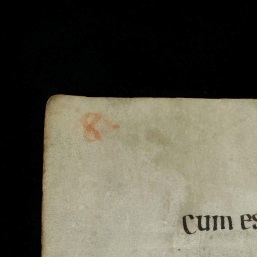 8-
cum es